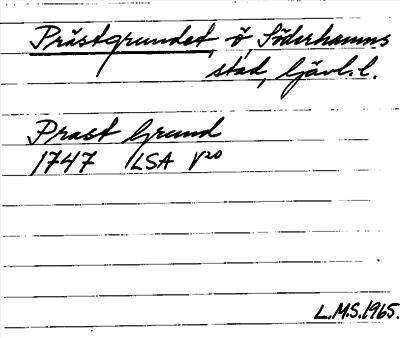 Prästgrundet, ö, Söderhamns
stad, Gävl.l.
Prast Grund
1747 LSA V20
L.M.S. 1965.